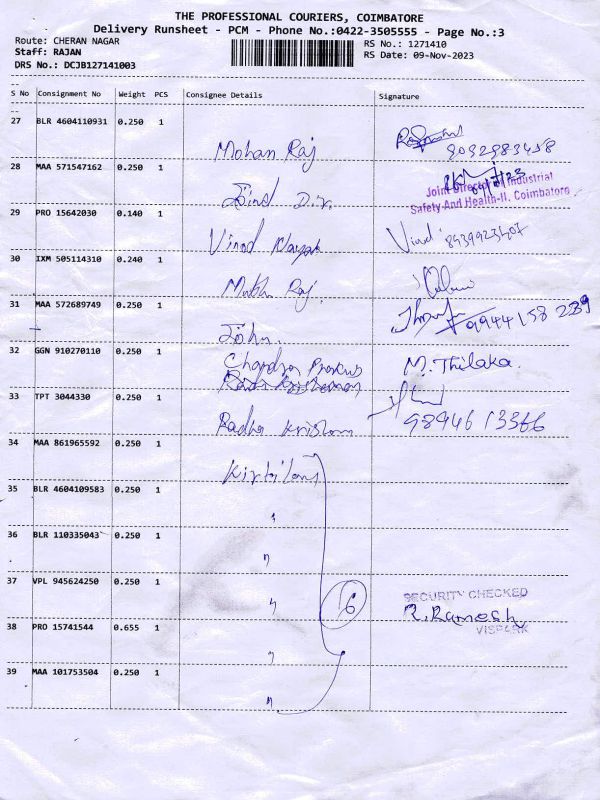 THE PROFESSIONAL COURIERS, COIMBATORE
Delivery Runsheet - PCM - Phone No.:0422-3505555 - Page No.:3
Route: CHERAN NAGAR
RS No.: 1271410
Staff: RAJAN
RS Date: 09-Nov-2023
DRS No.: DCJB127141003
S No Consignment No Weight PCS Consignee Details Signature
27 BLR 4604110931 0.250 1
Mohan Raj 9092983458
28 MAA 571547162 0.250 1
Joint Director of Industrial
Safety And Health-II, Coimbatore
29 PRO 15642030 0.140 1
Vinod Vinod 8939923407
30 IXM 505114310 0.240 1
Raj
31 MAA 572689749 0.250 1
John. 9944158289
32 GGN 910270110 0.250 1
Chandra M. Thilaka.
33 TPT 3044330 0.250 1
Radha Krishnan 9894613366
34 MAA 861965592 0.250 1
35 BLR 4604109583 0.250 1
"
36 BLR 110335043 0.250 1
"
37 VPL 945624250 0.250 1
" 6 SECURITY CHECKED
R. Ramesh
VISPARK
38 PRO 15741544 0.655 1
"
39 MAA 101753504 0.250 1
"